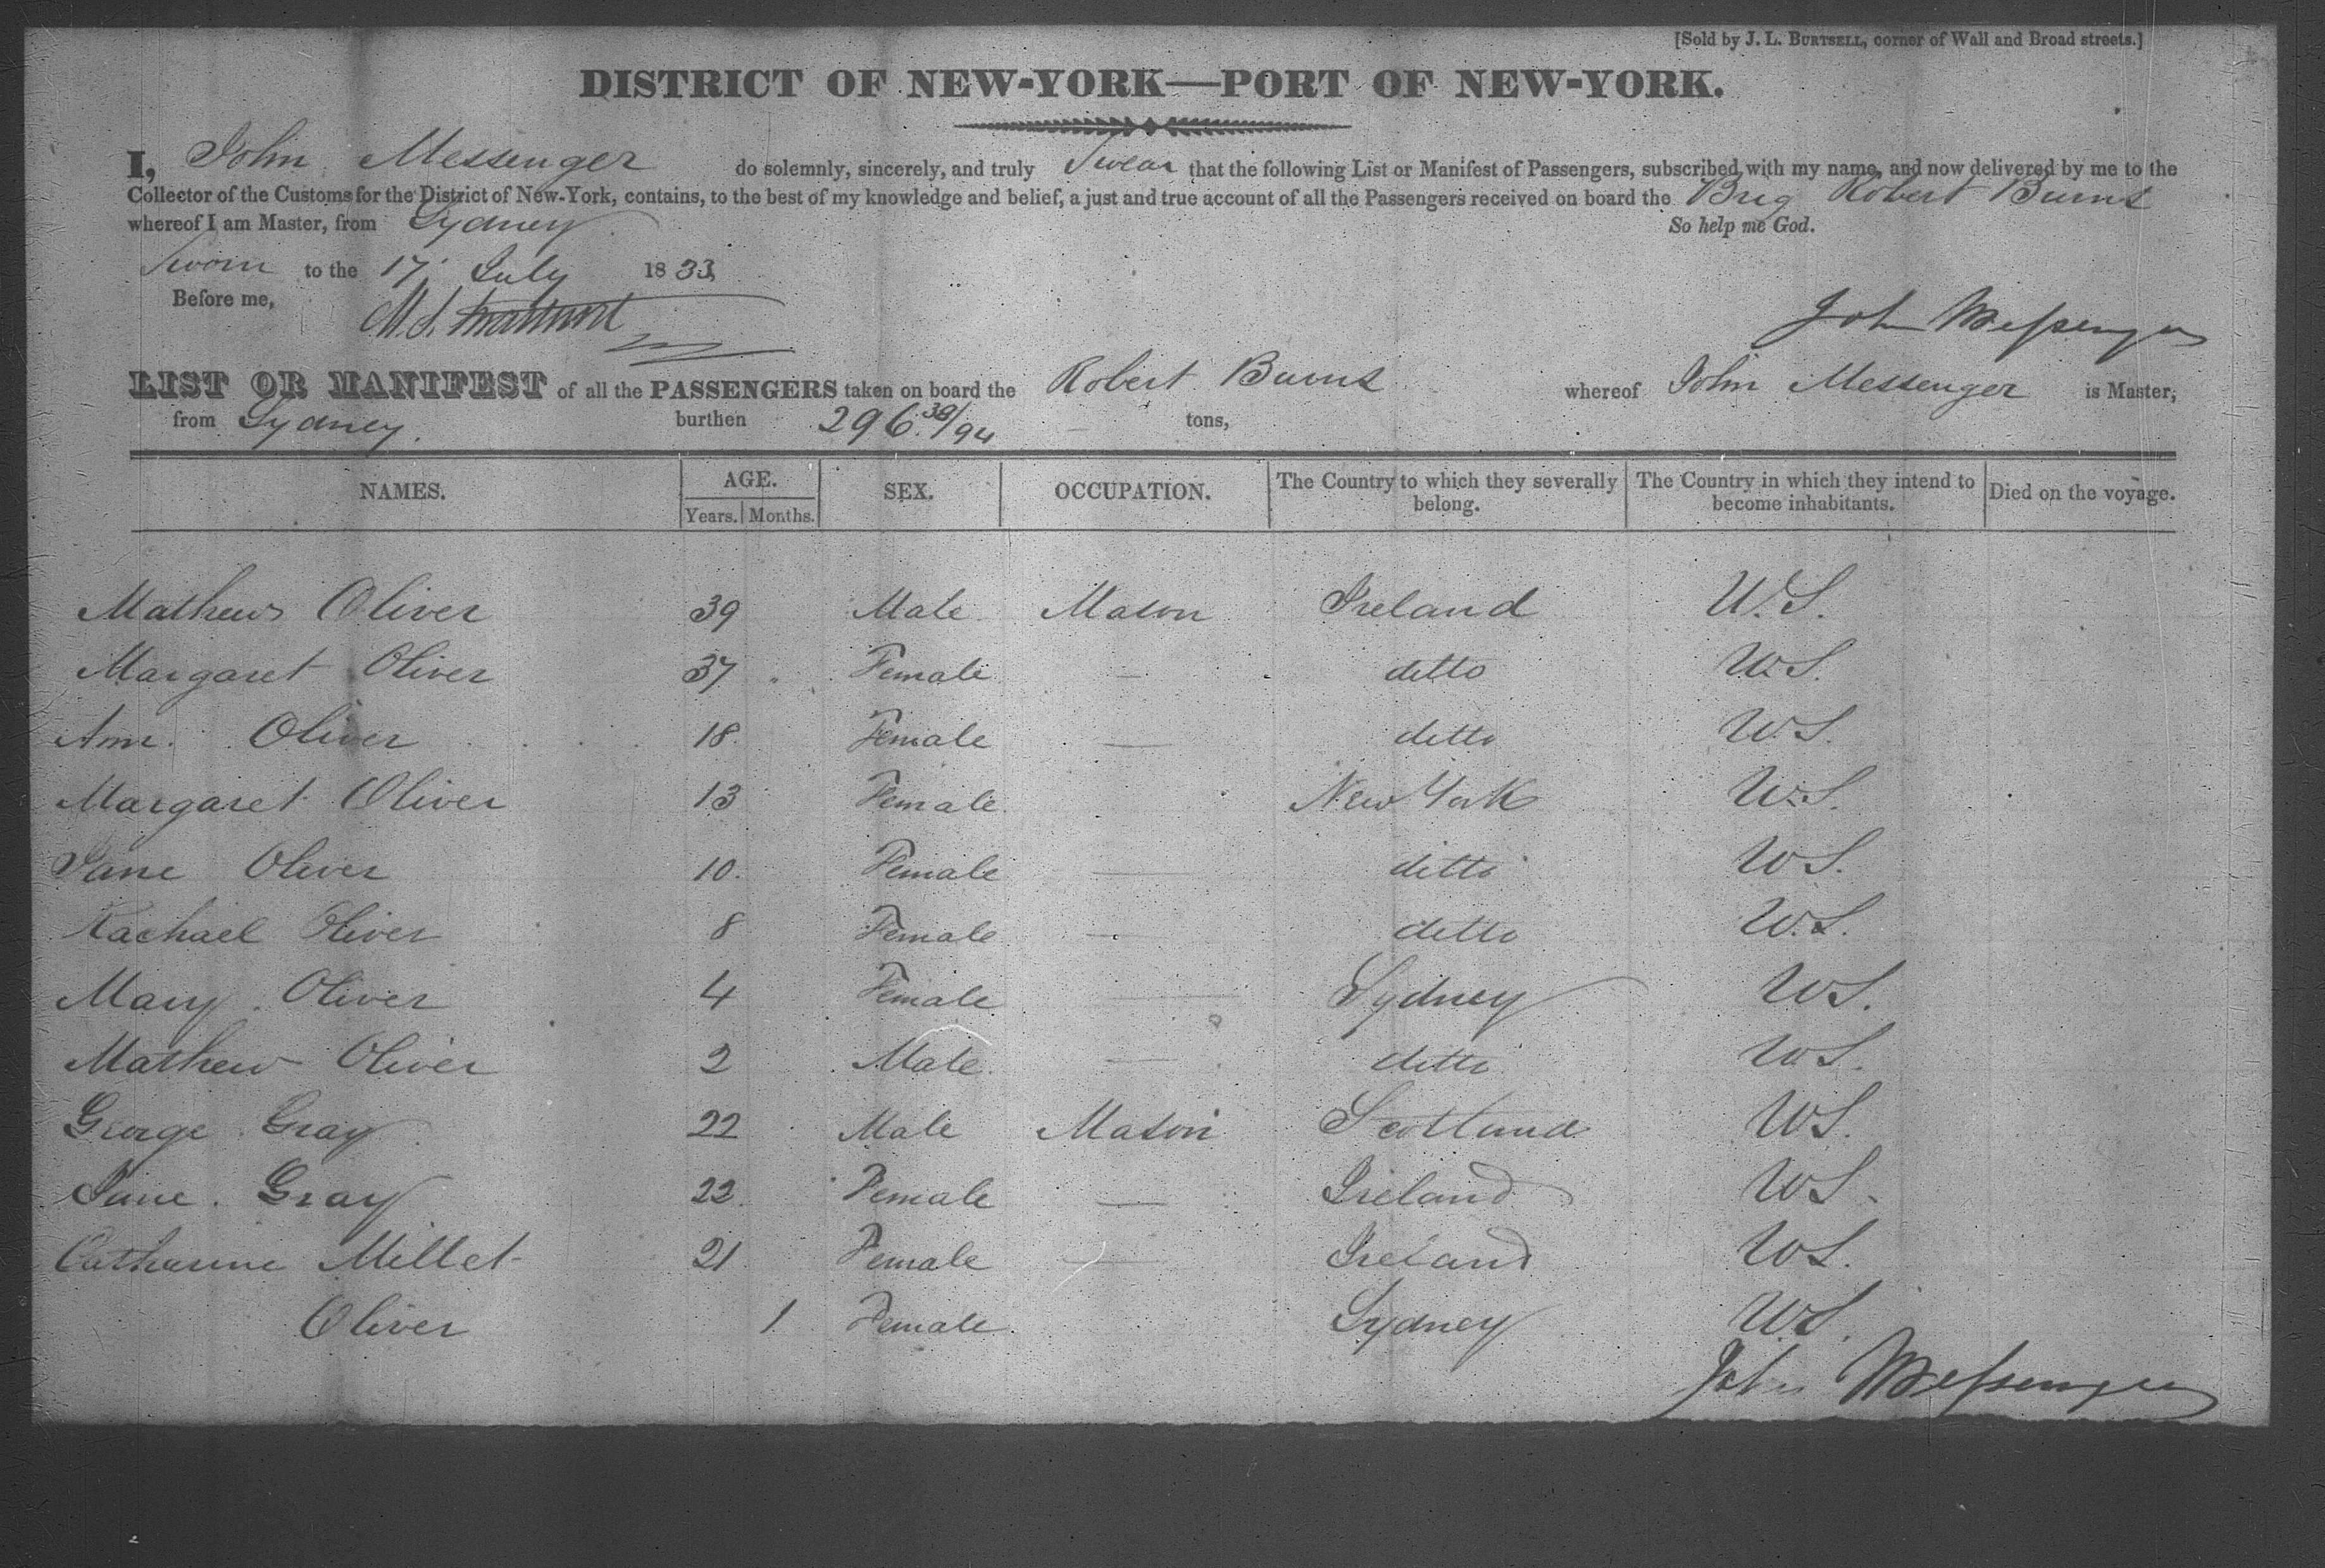 [Sold by J. L. BURTSELL, corner of Wall and Broad streets.]
DISTRICT OF NEW-YORK—PORT OF NEW-YORK.
I, John Messenger do solemnly, sincerely, and truly Swear that the following List or Manifest of Passengers, subscribed with my name, and now delivered by me to the
Collector of the Customs for the District of New-York, contains, to the best of my knowledge and belief, a just and true account of all the Passengers received on board the Brig Robert Burns
whereof I am Master, from Sydney So help me God.
Sworn to the 17 July 1833
Before me,
John Messenger
LIST OR MANIFEST of all the PASSENGERS taken on board the Robert Burns whereof John Messenger is Master,
from Sydney. burthen 296 /94 tons,
NAMES. AGE. SEX. OCCUPATION. The Country to which they severally belong. The Country in which they intend to become inhabitants. Died on the voyage.
Years. Months.
Mathew Oliver 39 Male Mason Ireland U.S.
Margaret Oliver 37 Female — ditto U.S.
Ann Oliver 18 Female — ditto U.S.
Margaret Oliver 13 Female New York U.S.
Jane Oliver 10 Female — ditto U.S.
Rachael Oliver 8 Female — ditto U.S.
Mary Oliver 4 Female — Sydney U.S.
Mathew Oliver 2 Male — ditto U.S.
George Gray 22 Male Mason Scotland U.S.
Jane Gray 22 Female — Ireland U.S.
Catharine Millet 21 Female — Ireland U.S.
Oliver 1 Female Sydney U.S.
John Messenger